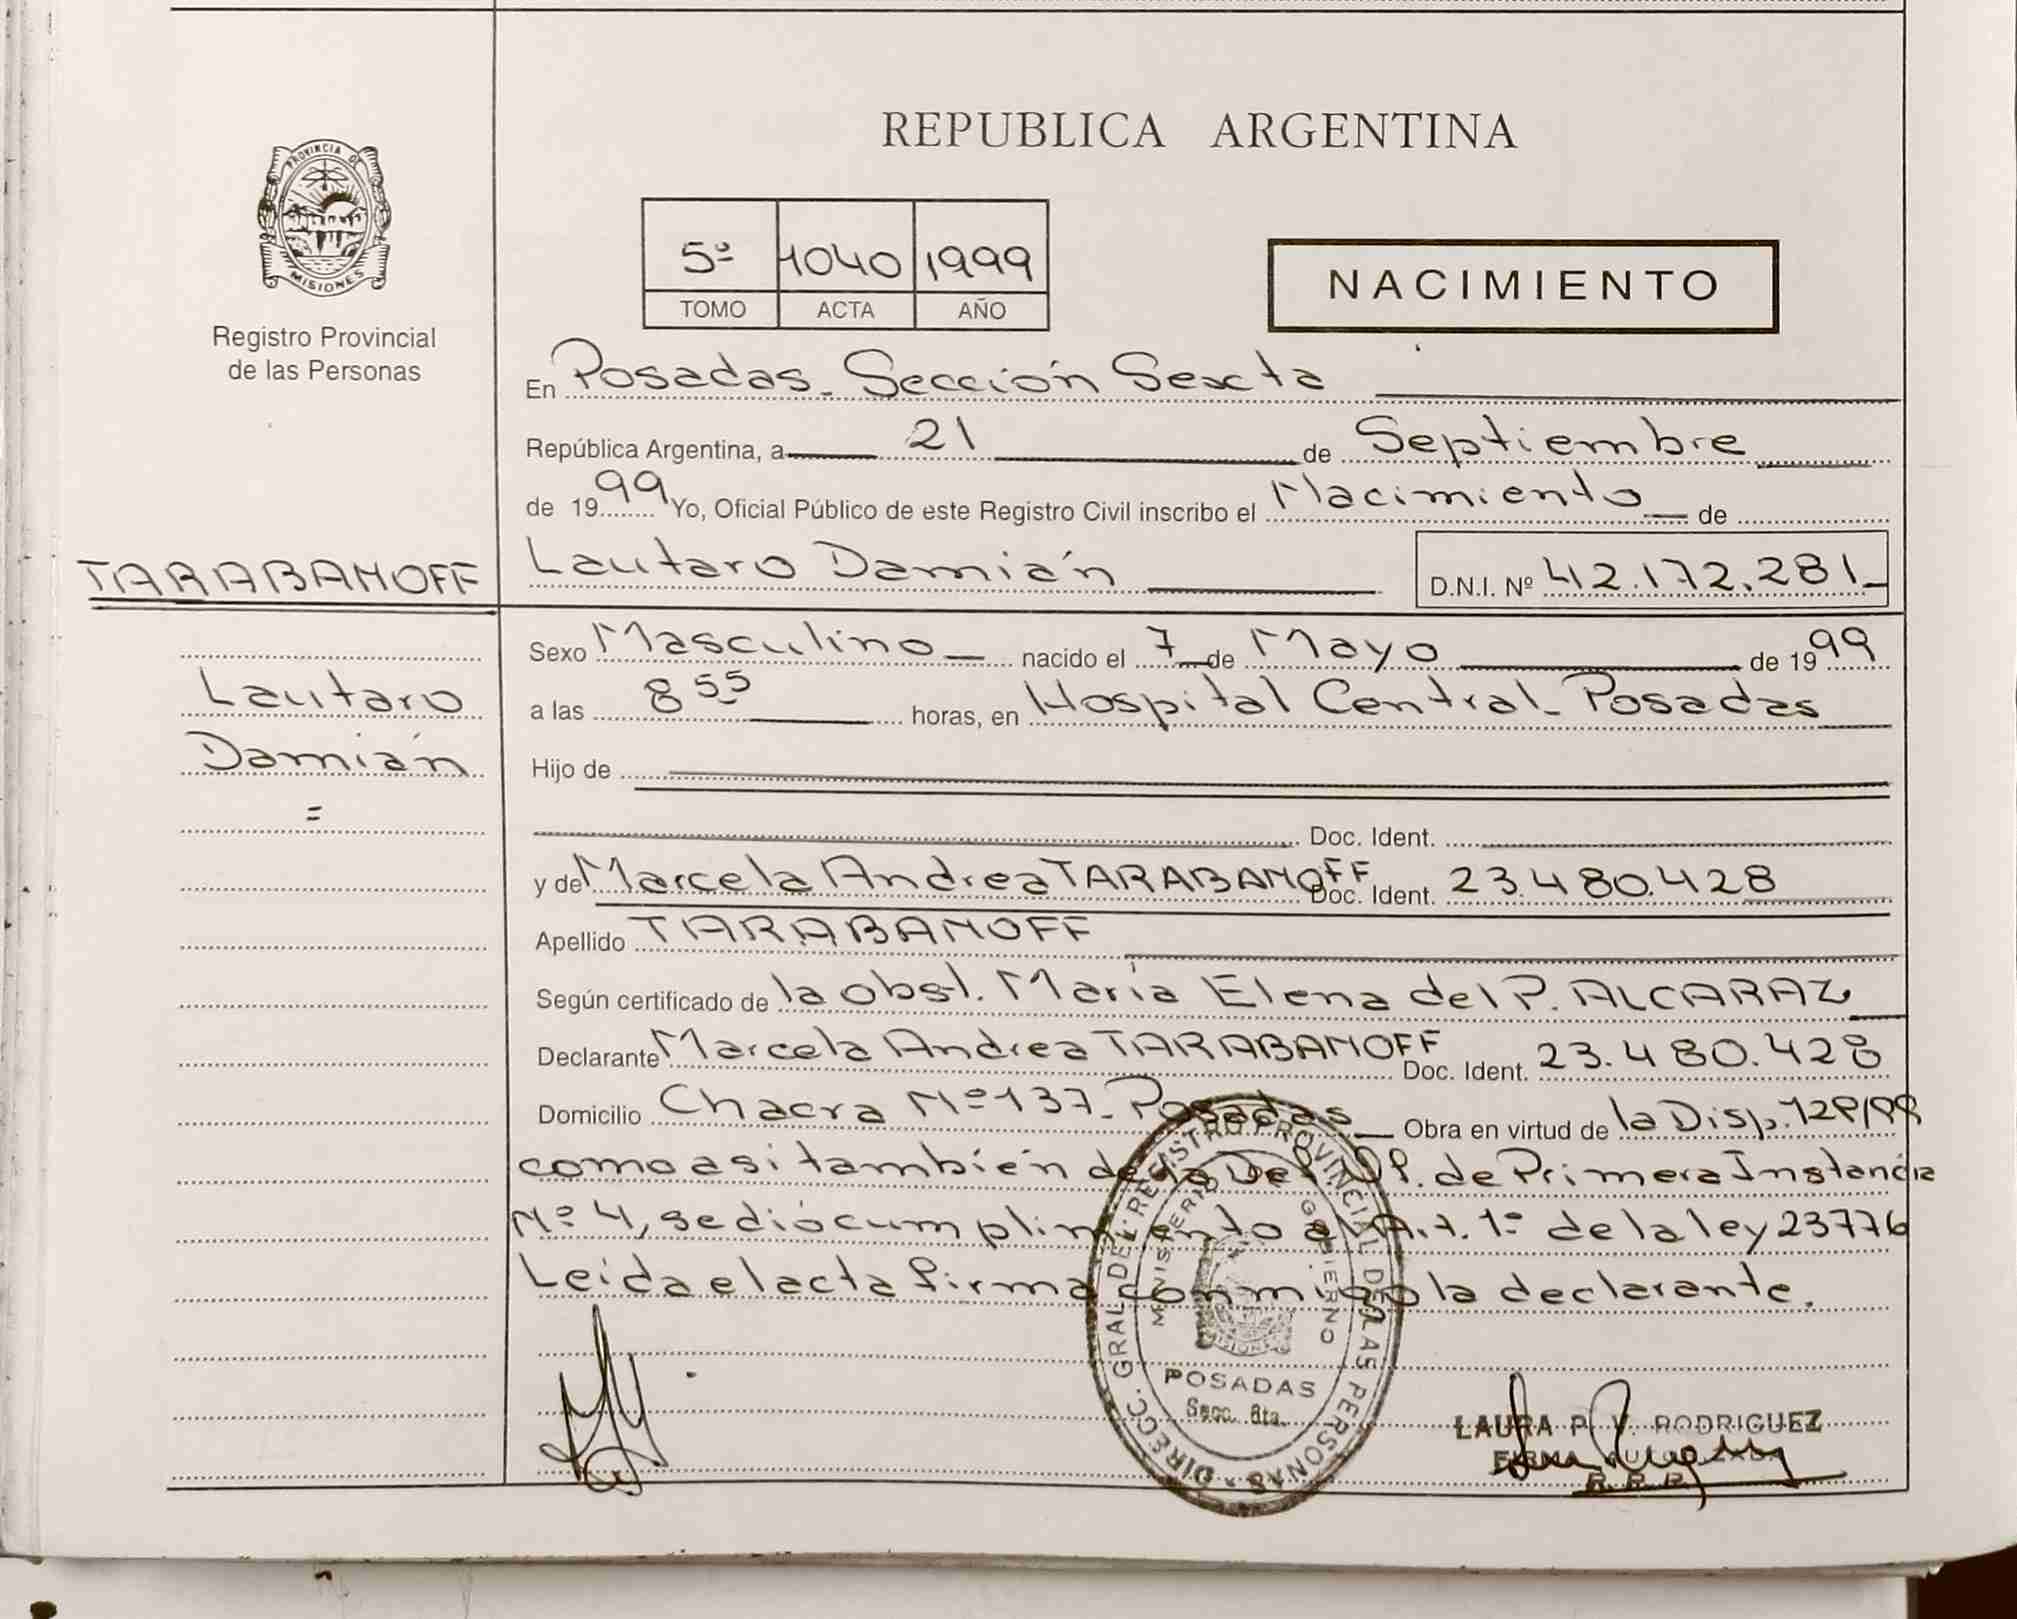 REPUBLICA ARGENTINA
PROVINCIA DE
MISIONES
Registro Provincial
de las Personas
5º 1040 1999
TOMO ACTA AÑO
NACIMIENTO
En Posadas. Sección Sexta
República Argentina, a 21 de Septiembre
de 1999 Yo, Oficial Público de este Registro Civil inscribo el Nacimiento de
TARABANOFF
Lautaro Damián D.N.I. Nº 42.172.281
Lautaro
Damián
=
Sexo Masculino nacido el 7 de Mayo de 1999
a las 8 55 horas, en Hospital Central Posadas
Hijo de
Doc. Ident.
y de Marcela Andrea TARABANOFF Doc. Ident. 23.480.428
Apellido TARABANOFF
Según certificado de la obst. María Elena del P. ALCARAZ
Declarante Marcela Andrea TARABANOFF Doc. Ident. 23.480.428
Domicilio Chacra Nº 137 - Posadas Obra en virtud de la Disp.
como asi también de la Def. Of. de Primera Instancia
Nº 4, se dió cumplimiento al Art. 1º de la ley 23776
Leída el acta firma conmigo la declarante.
DIRECC. GRAL DEL REGISTRO PROVINCIAL DE LAS PERSONAS
MINISTERIO GOBIERNO
POSADAS
Secc. 6ta.
LAURA P. V. RODRIGUEZ
FIRMA AUTORIZADA
R. P. P.